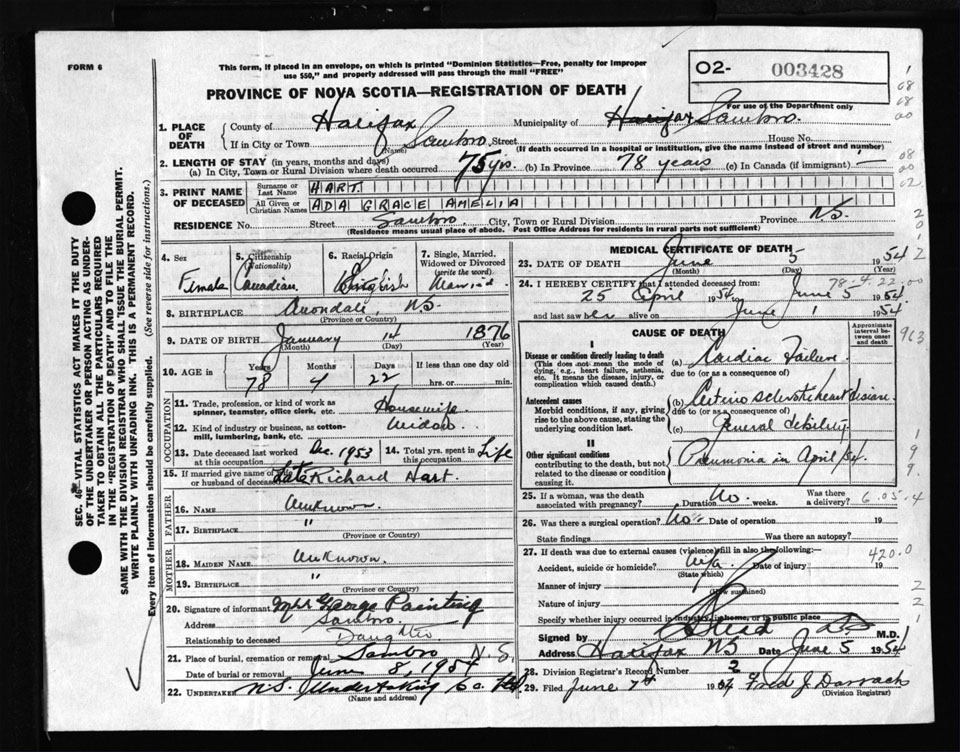 FORM 6
This form, if placed in an envelope, on which is printed "Dominion Statistics—Free, penalty for improper
use $50," and properly addressed will pass through the mail "FREE"
PROVINCE OF NOVA SCOTIA—REGISTRATION OF DEATH
02- 003428
For use of the Department only
1. PLACE OF DEATH
County of Halifax Municipality of Halifax Sambro.
If in City or Town Sambro Street House No.
(Name) (If death occurred in a hospital or institution, give the name instead of street and number)
2. LENGTH OF STAY (in years, months and days)
(a) In City, Town or Rural Division where death occurred 75 yrs. (b) In Province 78 years (c) In Canada (if immigrant) —
3. PRINT NAME OF DECEASED
Surname or Last Name HART
All Given or Christian Names ADA GRACE AMELIA
RESIDENCE No. Street Sambro City, Town or Rural Division Province N.S.
(Residence means usual place of abode. Post Office Address for residents in rural parts not sufficient)
4. Sex Female
5. Citizenship (Nationality) Canadian
6. Racial Origin English
7. Single, Married, Widowed or Divorced (write the word) Married
8. BIRTHPLACE Avondale, N.S.
(Province or Country)
9. DATE OF BIRTH January 14 1876
(Month) (Day) (Year)
10. AGE in Years 78 Months 4 Days 22 If less than one day
hrs. or min.
OCCUPATION
11. Trade, profession, or kind of work as
spinner, teamster, office clerk, etc. Housewife
12. Kind of industry or business, as cotton-
mill, lumbering, bank, etc. Widow
13. Date deceased last worked
at this occupation Dec. 1953
14. Total yrs. spent in
this occupation Life
15. If married give name of wife
or husband of deceased Late Richard Hart.
FATHER
16. NAME Unknown
17. BIRTHPLACE "
(Province or Country)
MOTHER
18. MAIDEN NAME Unknown.
19. BIRTHPLACE "
(Province or Country)
20. Signature of informant Mrs George Painting
Address Sambro.
Relationship to deceased Daughter
21. Place of burial, cremation or removal Sambro N.S.
Date of burial or removal June 8, 1954
22. UNDERTAKER N.S. Undertaking Co. Ltd
(Name and address)
MEDICAL CERTIFICATE OF DEATH
23. DATE OF DEATH June 5 1954
(Month) (Day) (Year)
78-4-22-00
24. I HEREBY CERTIFY that I attended deceased from:
25 April 1954 to June 5 1954
and last saw her alive on June 1 1954
CAUSE OF DEATH
Approximate interval between onset and death
I
Disease or condition directly leading to death
(This does not mean the mode of
dying, e.g., heart failure, asthenia,
etc. It means the disease, injury, or
complication which caused death.)
(a) Cardiac Failure
due to (or as a consequence of)
Antecedent causes
Morbid conditions, if any, giving
rise to the above cause, stating the
underlying condition last.
(b) Arterio sclerotic heart disease
due to (or as a consequence of)
(c) General debility
II
Other significant conditions
contributing to the death, but not
related to the disease or condition
causing it.
Pneumonia in April/54.
25. If a woman, was the death
associated with pregnancy? No Duration weeks. Was there
a delivery?
6.05.4
26. Was there a surgical operation? No. Date of operation 19
State findings Was there an autopsy?
27. If death was due to external causes (violence) fill in also the following:—
420.0
Accident, suicide or homicide? Date of injury 19
(State which)
Manner of injury
(How sustained)
Nature of injury
Specify whether injury occurred in industry, in home, or in public place
Signed by M.D.
Address Halifax NS Date June 5 1954
28. Division Registrar's Record Number 2
29. Filed June 7th 1954 Fred J. Darrach
(Division Registrar)
SEC. 46 VITAL STATISTICS ACT MAKES IT THE DUTY
OF THE UNDERTAKER OR PERSON ACTING AS UNDER-
TAKER TO OBTAIN ALL THE PARTICULARS REQUIRED
IN THE "REGISTRATION OF DEATH" AND TO FILE THE
SAME WITH THE DIVISION REGISTRAR WHO SHALL ISSUE THE BURIAL PERMIT.
WRITE PLAINLY WITH UNFADING INK. THIS IS A PERMANENT RECORD.
Every item of information should be carefully supplied. (See reverse side for instructions.)
963